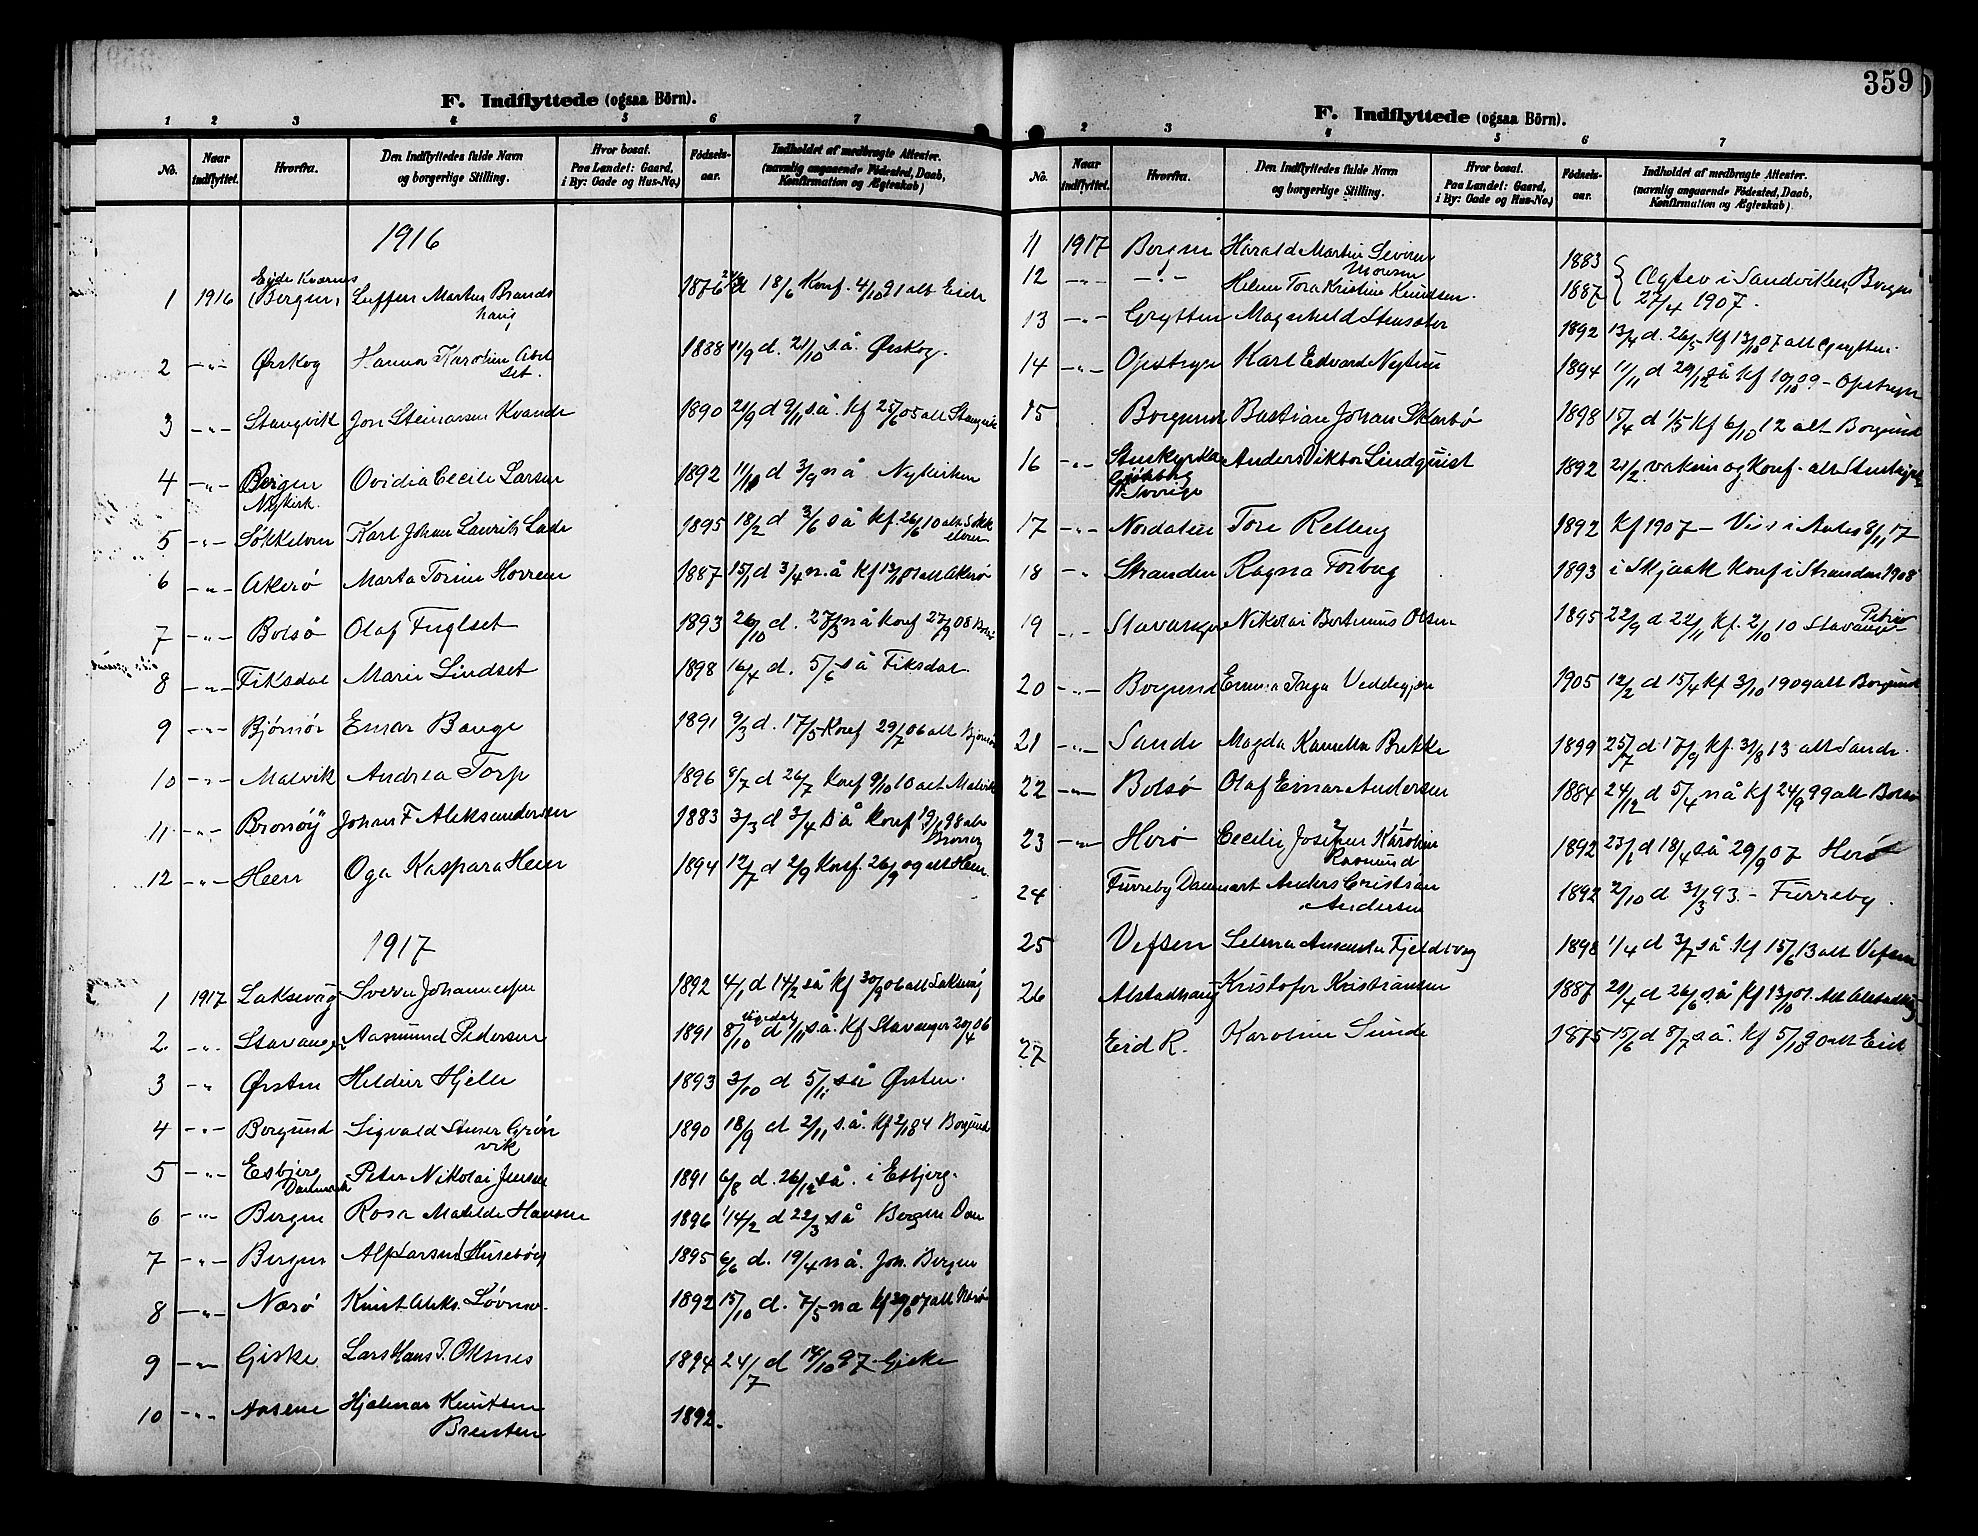 359
F. Indflyttede (ogsaa Börn).
1 2 3 4 5 6 7
No. Naar indflyttet. Hvorfra. Den Indflyttedes fulde Navn og borgerlige Stilling. Hvor bosat. Paa Landet: Gaard, i By: Gade og Hus-No.) Födsels-aar. Indholdet af medbragte Attester. (navnlig angaaende Födested, Daab, Konfirmation og Ægteskab)
1916
1 1916 Eide Kvernes (Bergen) Martin Brands haug 1876 18/6 Konf. 4/10 91 alt Eide
2 -"- Ørskog Hanna Karoline set. 1888 11/9 d. 21/10 s.å. Ørskog.
3 -"- Stangvik Jon Steinarsen Kvande 1890 21/9 d 9/11 s.å. Kf 25/6 05 alt Stangvik
4 -"- Bergen Nykirk. Ovidia Cecilie Larsen 1892 11/10 d 3/9 n å Nykirken
5 -"- Søkkelven Karl Johan Laurits Lade 1895 18/2 d 3/6 så Kf. 26/6 10 alt Søkkelven
6 -"- Akerø Marta Torine Horrem 1887 15/1 d 3/4 n.å Kf alt Akerø
7 -"- Bolsø Olaf Fuglset 1893 26/10 d. 27/3 n å Konf 27/9 08 Bolsø
8 -"- Fiksdal Marie Lindset 1898 16/4 d. 5/6 s å Fiksdal.
9 -"- Bjørnør Einar Bange 1891 9/3 d. 17/5 Konf 29/7 06 alt Bjørnør
10 -"- Malvik Andrea Torp 1896 9/7 d 26/7 Konf 9/10 10 alt Malvik
11 -"- Brønøy Johan F Aleksandersen 1883 3/3 d 3/4 s å Konf 98 alt Brønøy
12 -"- Heen Oga Kaspara Heen 1894 12/7 d 2/9 Konf. 26/9 09 alt Heen.
1917
1 1917 Laksevåg Sverre Johannessen 1892 4/1 d 14/2 så Kf 30/9 06 alt Laksevåg
2 -"- Stavanger Aasmund Pedersen 1891 8/10 d 1/11 s.å. Kf Stavanger 20/4 06
3 -"- Ørsten Heldur Hjelle 1893 3/10 d 5/11 så Ørsten.
4 -"- Borgund Sigvald Stener Grønvik 1890 18/9 d 2/11 s.å. Kf Borgund
5 -"- Esbjerg Danmark Peter Nikolai Jensen 1891 6/8 d. 26/12 så. i Esbjerg.
6 -"- Bergen Rosa Matilde Hansen 1896 14/2 d 22/3 så Bergen Dom
7 -"- Bergen Alf Larsen Husebøes 1895 6/6 d. 19/4 n å. Joh. Bergen
8 -"- Nærø Knut Aleks. Løvmo. 1892 15/10 d. 7/5 n å Kf 07 alt Nærø
9 -"- Giske Lars Hans J. Oksnes 1894 24/7 d 14/10 97 Giske
10 -"- Aasene Hjalmar Knutsen Breisten 1892.
F. Indflyttede (ogsaa Börn).
2 3 4 5 6 7
No. Naar indflyttet. Hvorfra. Den Indflyttedes fulde Navn og borgerlige Stilling. Hvor bosat. Paa Landet: Gaard, i By: Gade og Hus-No.) Födsels-aar. Indholdet af medbragte Attester. (navnlig angaaende Födested, Daab, Konfirmation og Ægteskab).
11 1917 Bergen Harald Martin Severin Monsen 1883
12 -"- -"- Helene Tora Kristine Knudsen. 1887 Ægtev i Sandviken, Bergen 27/4 1907.
13 -"- Grytten Magnhild Stensøter 1892 13/4 d. 26/5 Kf 13/10 07 alt Grytten.
14 -"- Opstryn Karl Edvard Nystuen 1894 11/11 d 29/12 så Kf 10/10 09 - Opstryn
15 Borgund Bastian Johan Skarbø 1898 15/4 d 1/5 Kf 6/10 12 alt Borgund
16 -"- Stenkyrka Göteborg Sverige Anders Viktor Lindquist 1892 21/2. vaksin og Konf. alt Stenkyrka
17 -"- Nordalen Tore Relling 1892 Kf 1907 - Vist i Avtes 8/11 17
18 -"- Stranden Ragna Torbug 1893 i Skjaak Konf i Stranden 1908
19 -"- Stavanger Nikolai Bertinius Olsen 1895 22/9 d 22/11 Kf. 2/10 10 Stavanger Petri
20 -"- Borgund Emma Inga Veddegjerd 1905 12/2 d 15/4 Kf 3/10 1909 alt Borgund
21 -"- Sande Magda Kamilla Brekke 1899 25/7 d 17/9 Kf. 31/8 13 alt Sande.
22 -"- Bolsø Olaf Einar Andersen 1884 24/12 d 5/4 n å Kf 24/9 99 alt Bolsø
23 -"- Herø Cecilie Josefine Karoline Rasmund 1892 23/1 d 18/4 så 29/9 07 Herø
24 Furreby Danmark Anders Cristian Andersen 1892 2/10 d 31/3 93 - Furreby.
25 Vefsen Selma Amanda Fjeldavæg 1898 1/4 d 3/7 så Kf 15/6 13 alt Vefsen
26 Alstadhaug Kristofer Kristiansen 1887 21/4 d 26/6 så Kf 13/10 01. Alt Alstadhaug
27 Eid R. Karoline Sunde 1875 15/6 d 8/7 s å. Kf 5/10 90 alt Eid